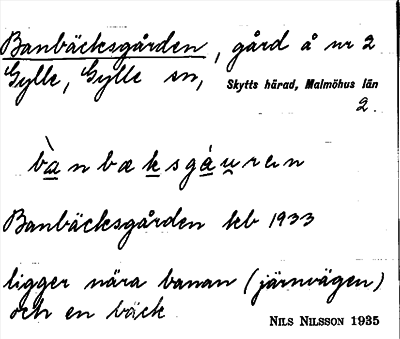 Banbäcksgården, gård å nr 2
Gylle, Gylle sn,
Skytts härad, Malmöhus län
2.
bànbæksgáu̯rən
Banbäcksgården kb 1933
ligger nära banan (järnvägen)
och en bäck
NILS NILSSON 1935